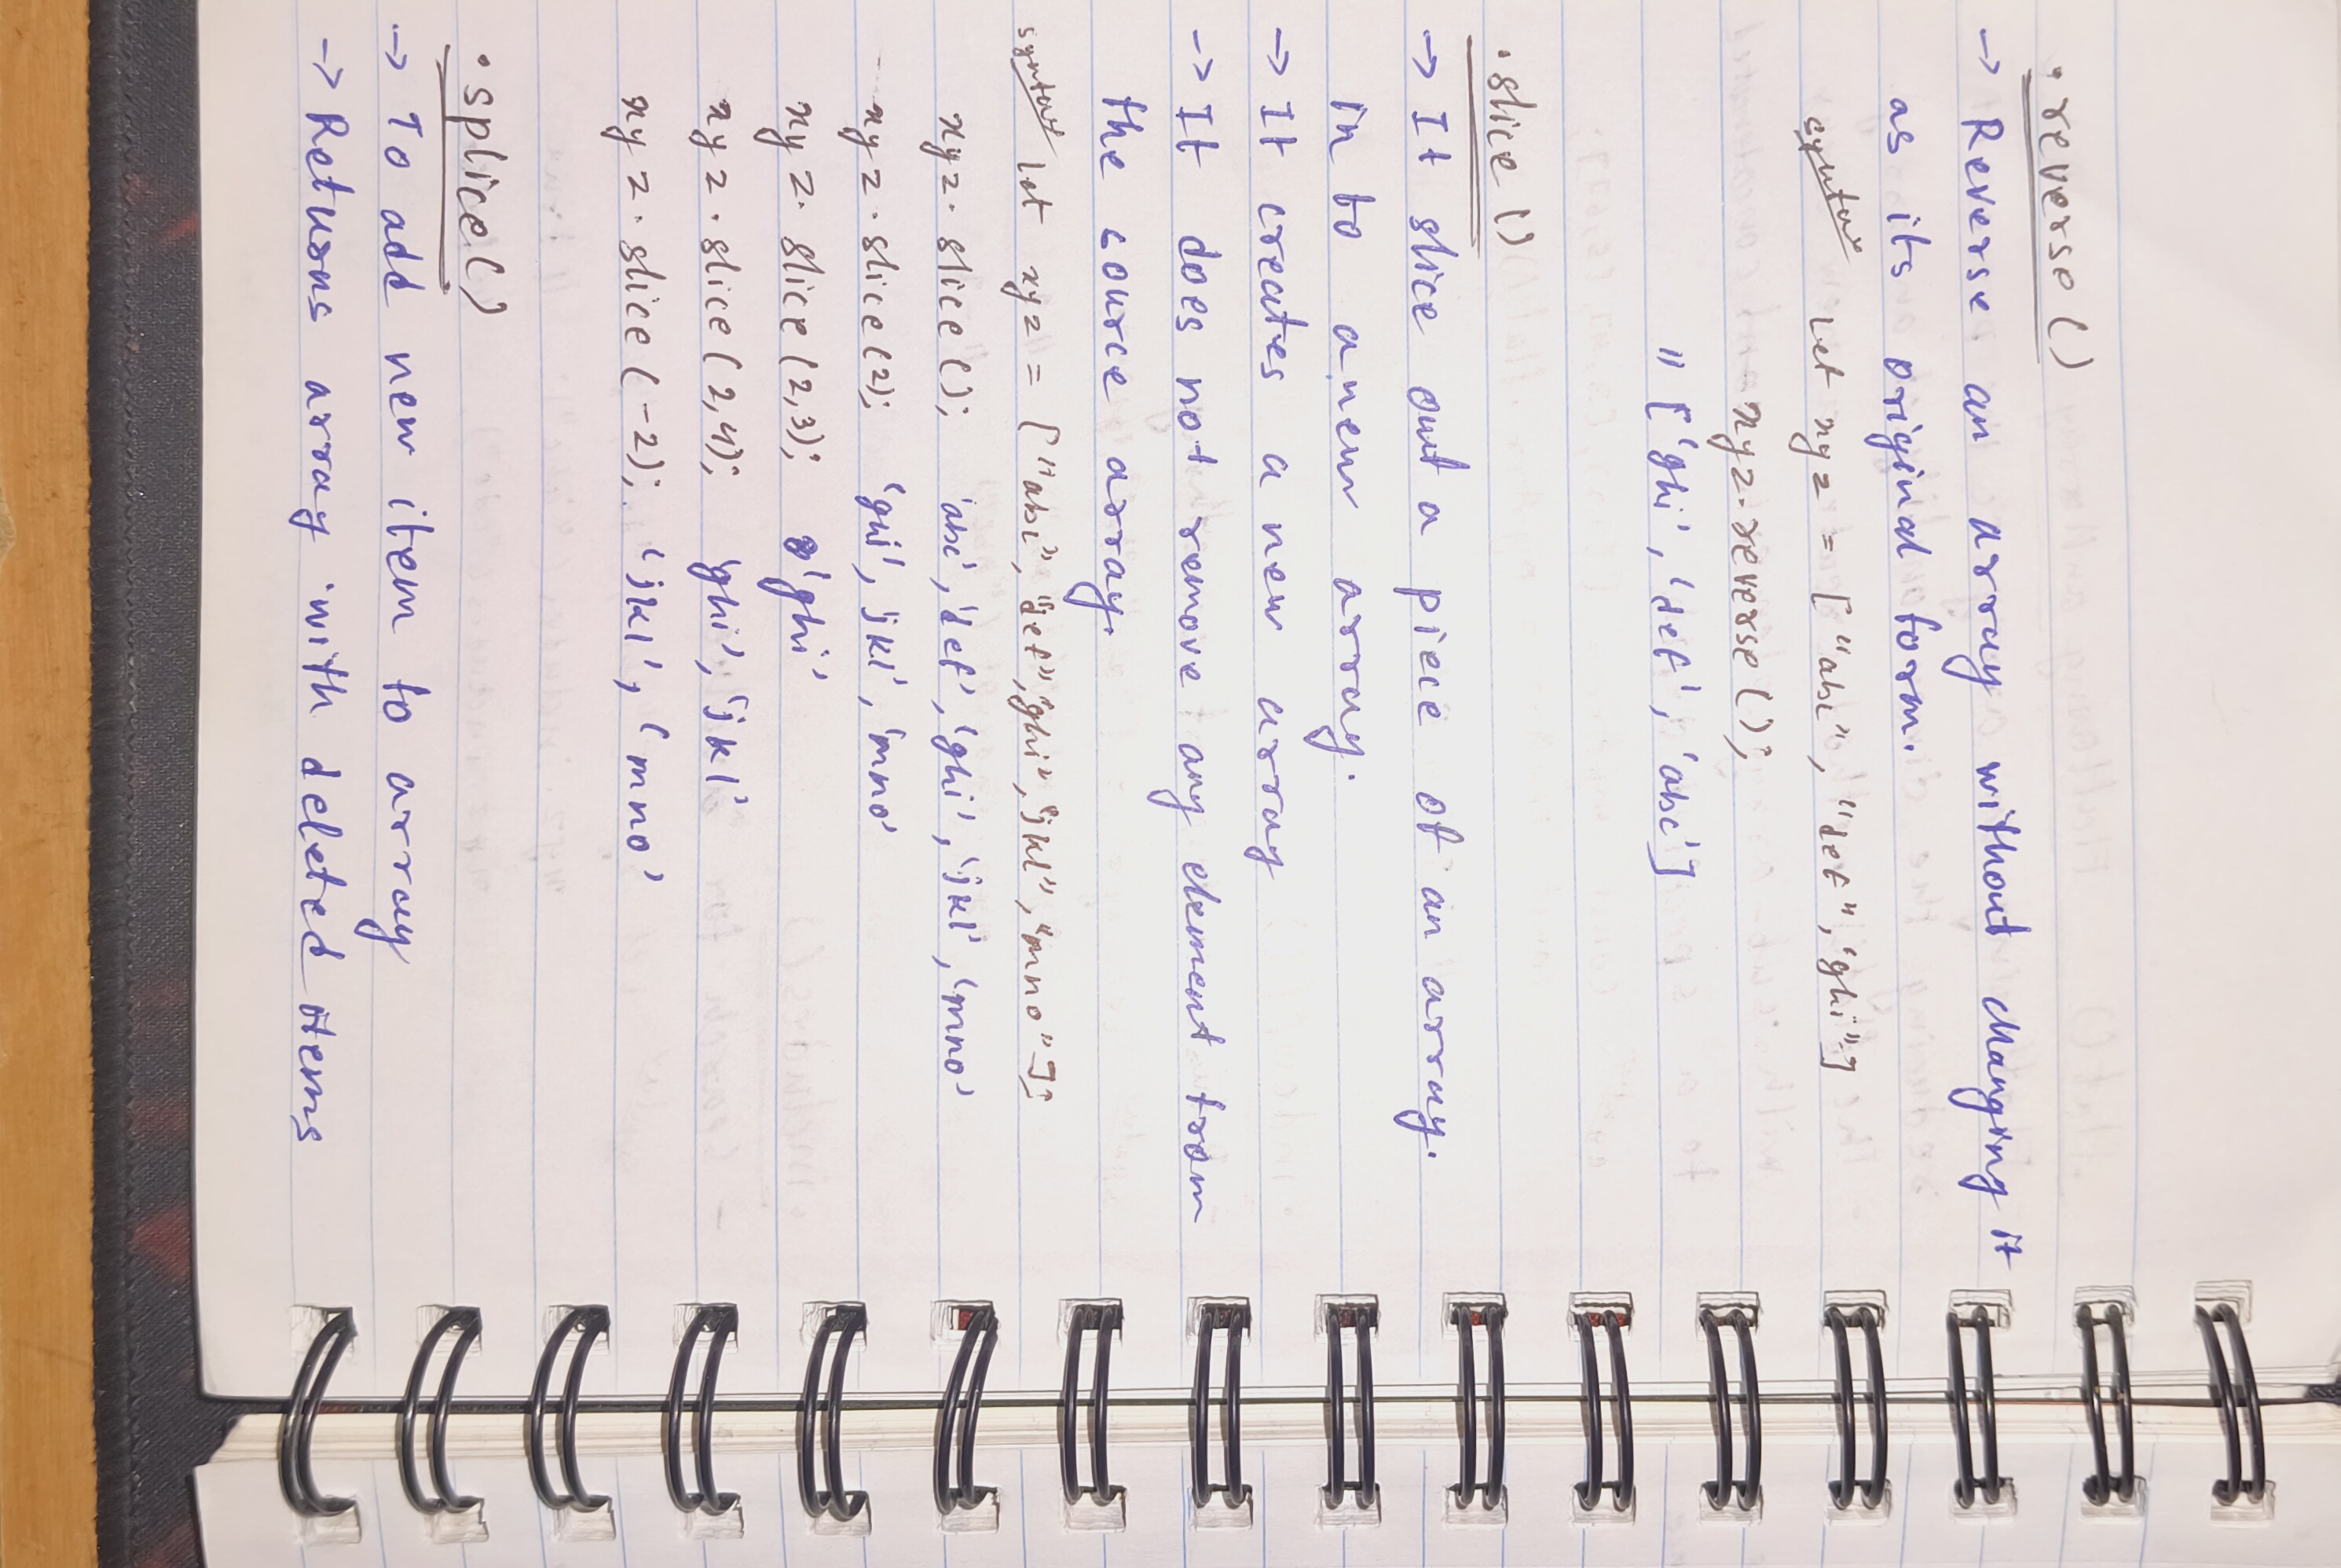 .reverse ()
-> Reverse an array without changing it
as its original form.
syntax Let xyz = ["abc", "def", 'ghi"]
xyz.reverse();
" ['ghi', 'def', 'abc']
.slice ()
-> It slice out a piece of an array.
in to a new array.
-> It creates a new array
-> It does not remove any element from
the source array.
syntax Let xyz = ["abc", "def", "ghi", "jkl", "mno"];
xyz. slice (); 'abc', 'def', 'ghi', 'jkl', 'mno'
xyz. slice (2); 'ghi', 'jkl', 'mno'
xyz. slice (2,3); 'ghi'
xyz. slice (2,4); 'ghi', 'jkl'
xyz. slice (-2); 'jkl', 'mno'
.splice()
-> To add new item to array
-> Returns array with deleted items